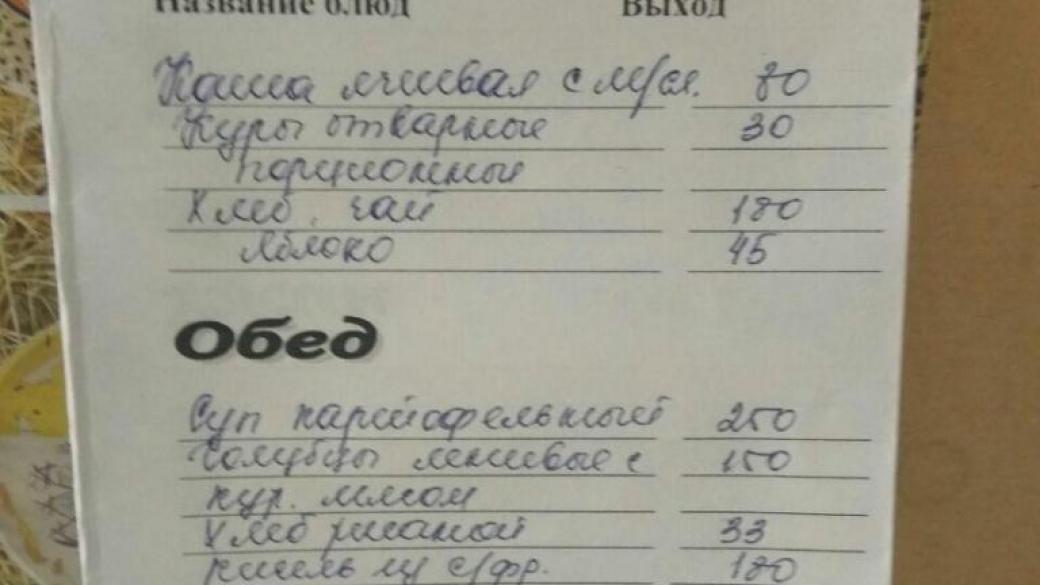 Название блюд Выход
Каша ячневая с м/сл. 80
Куры отварные 30
порционные
Хлеб, чай 180
Яблоко 45
Обед
Суп картофельный 250
Голубцы ленивые с 150
кур. мясом
Хлеб ржаной 33
кисель из с/фр. 180